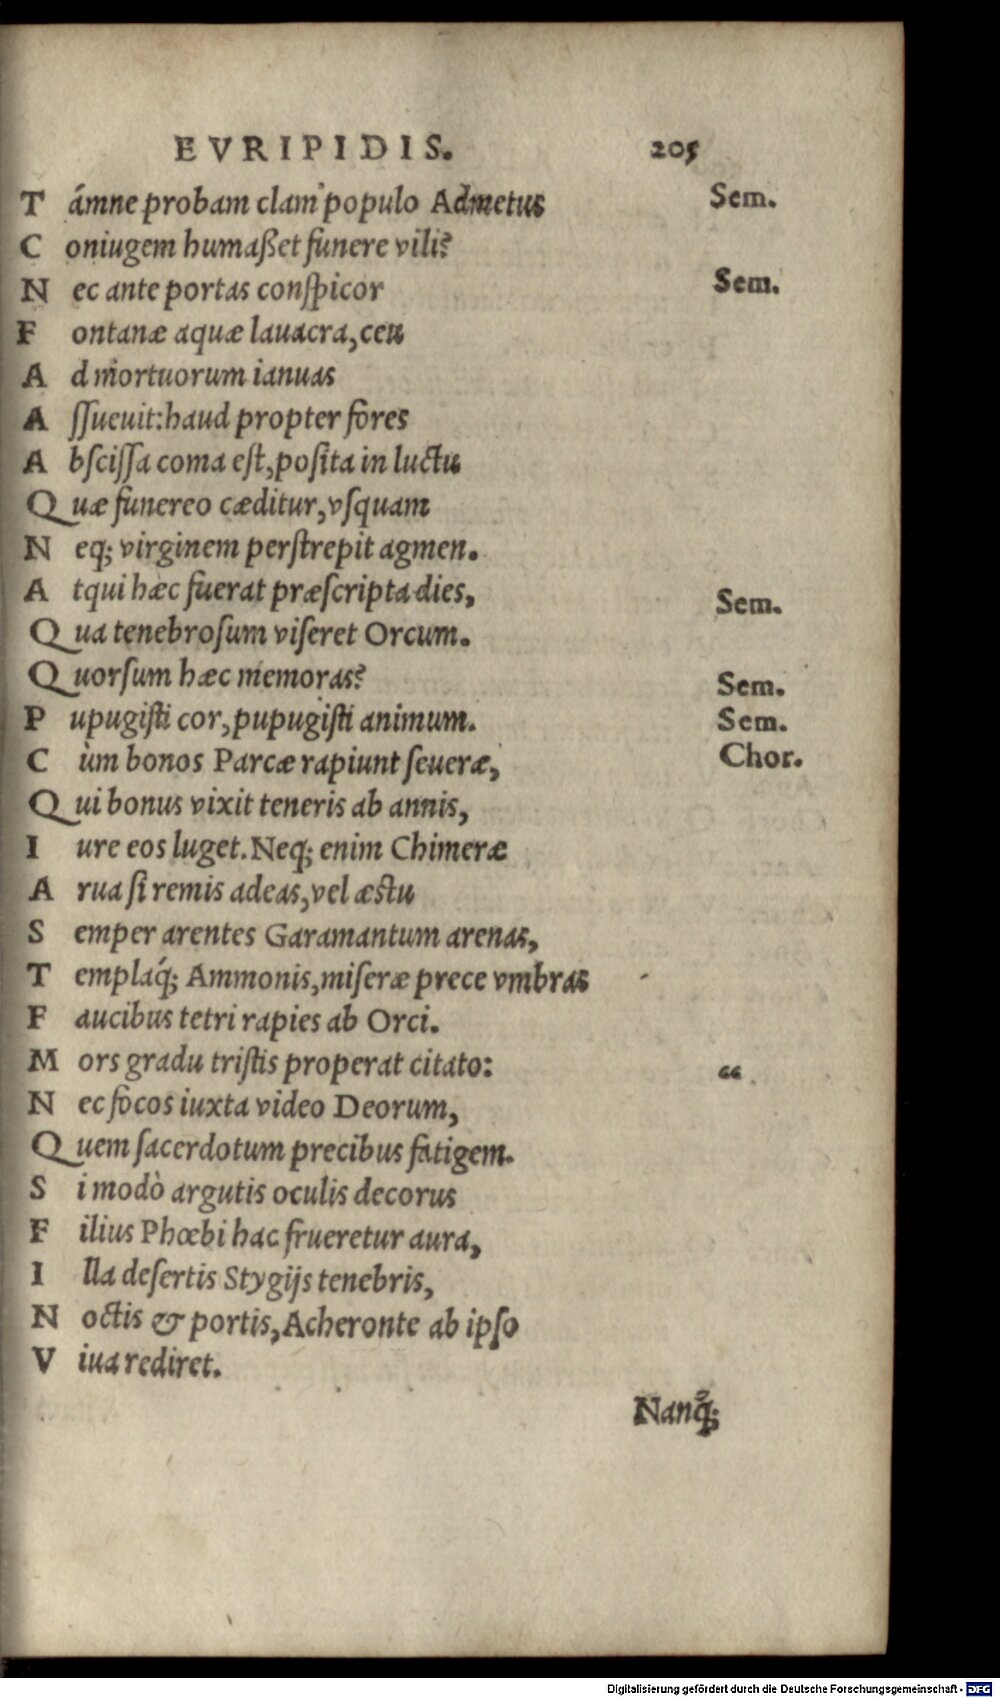 EVRIPIDIS. 205
Támne probam clam populo Admetus Sem.
Coniugem humaßet funere vili?
Nec ante portas conſpicor Sem.
Fontanæ aquæ lauacra, ceu
Ad mortuorum ianuas
Aſſueuit: haud propter fores
Abſciſſa coma eſt, poſita in luctu
Quæ funereo cæditur, vſquam
Neq; virginem perſtrepit agmen.
Atqui hæc fuerat præſcripta dies, Sem.
Qua tenebroſum viſeret Orcum.
Quorſum hæc memoras? Sem.
Pupugiſti cor, pupugiſti animum. Sem.
Cùm bonos Parcæ rapiunt ſeueræ, Chor.
Qui bonus vixit teneris ab annis,
Iure eos luget. Neq; enim Chimeræ
Arua ſi remis adeas, vel æstu
Semper arentes Garamantum arenas,
Templaq́; Ammonis, miſeræ prece vmbras
Faucibus tetri rapies ab Orci.
Mors gradu triſtis properat citato: “
Nec focos iuxta video Deorum,
Quem ſacerdotum precibus fatigem.
Si modò argutis oculis decorus
Filius Phœbi hac frueretur aura,
Illa deſertis Stygijs tenebris,
Noctis & portis, Acheronte ab ipſo
Viua rediret.
Nanq́;
Digitalisierung gefördert durch die Deutsche Forschungsgemeinschaft - DFG